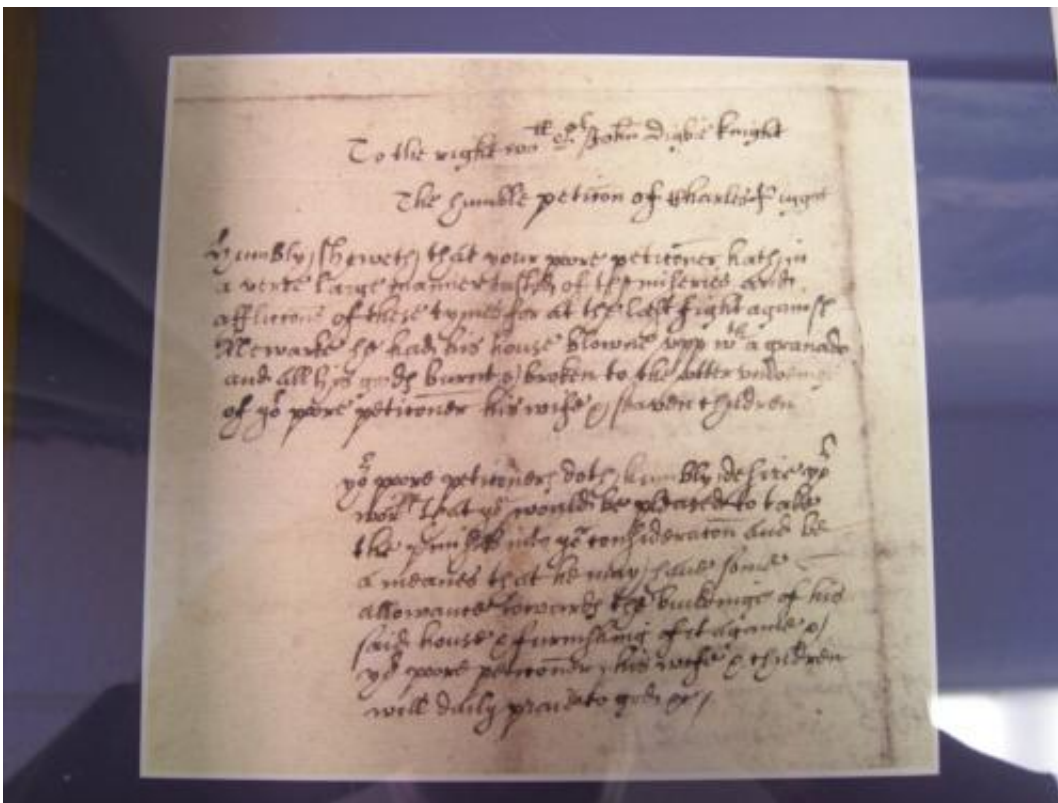 To the right wor^ll S^r John Digbie knight
The humble peticon of Charles
Humbly sheweth that your poore peticoner hath in
a verie large manner tasted of the miseries and
afflicons of these tymes for at the last fight against
Newarke he had his house blowne upp w^th a granado
and all his goods burnt & broken to the utter undoeing
of yo^r poore peticoner his wife & seaven children
yo^r poore peticoner doth humbly desire yo^r
wor^pp that yo^u would be pleased to take
the p'misses into yo^r consideracon and be
a meanes that he may have some
allowance towards the buildinge of his
said house & furnishing of it againe &
yo^r poore peticoner his wife & children
will daily praie to god &c